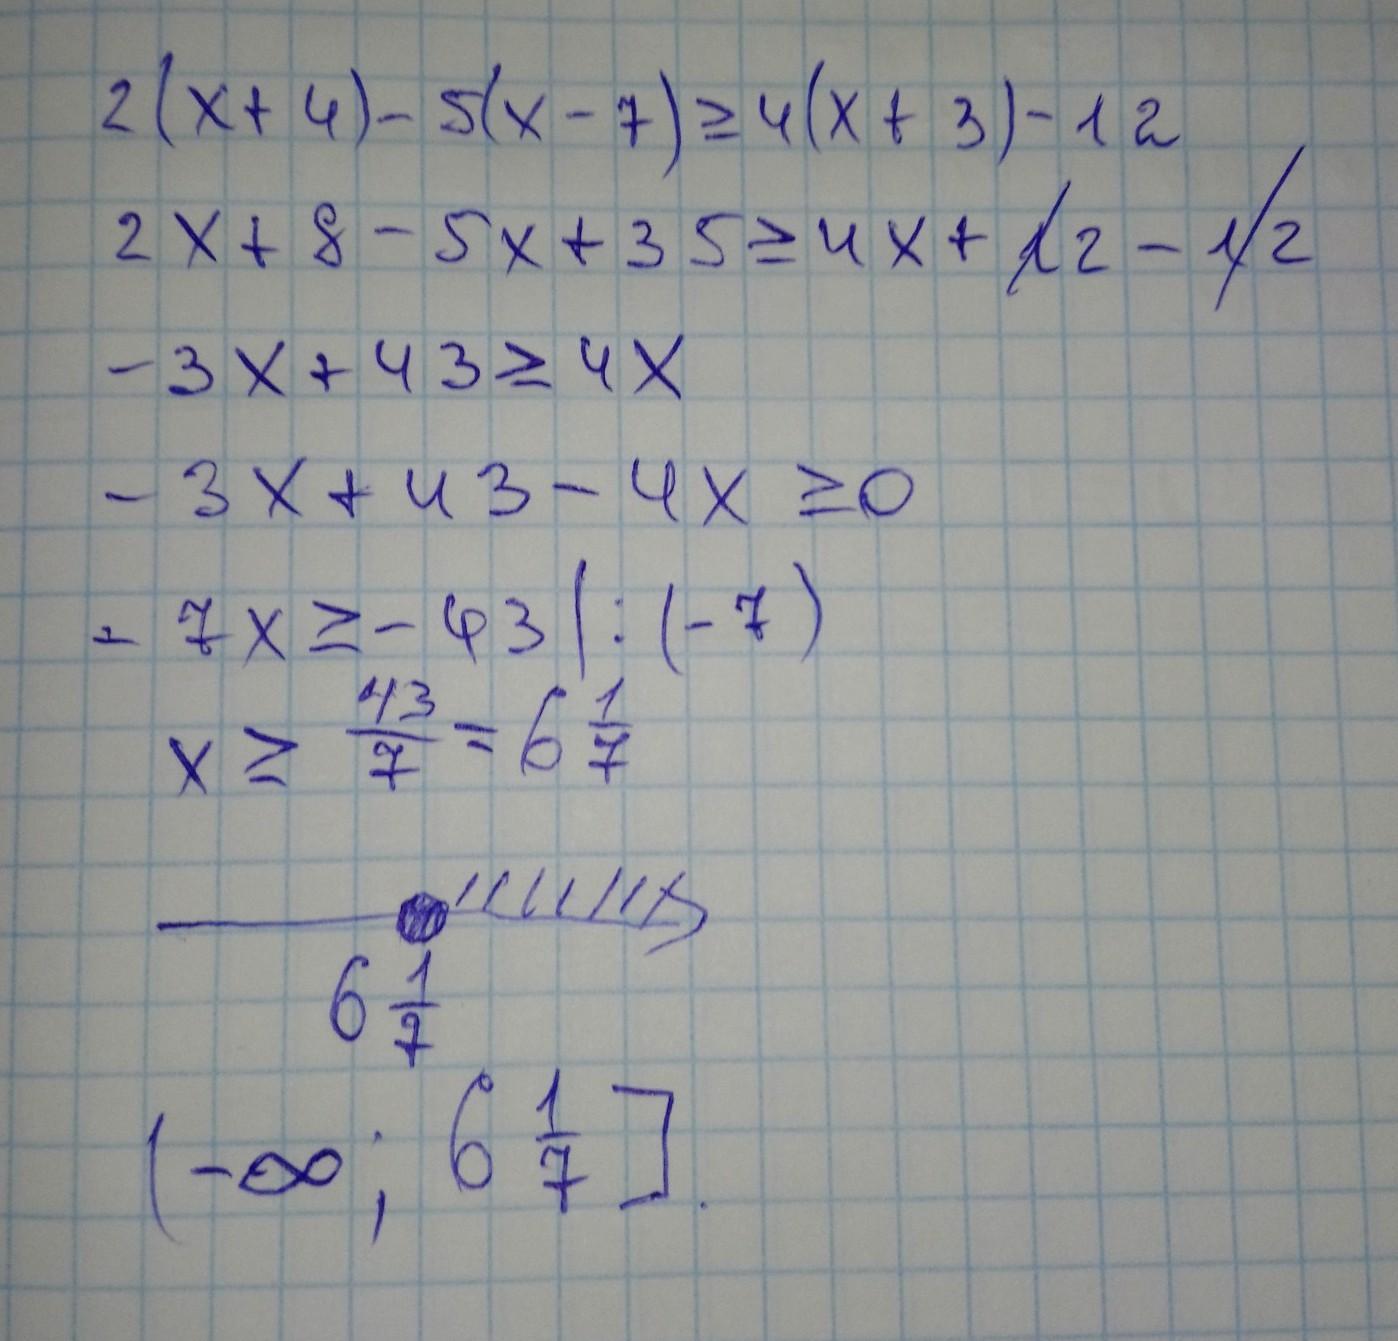 2(x+4)-5(x-7)≥4(x+3)-12
2x+8-5x+35≥4x+12-12
-3x+43≥4x
-3x+43-4x≥0
-7x≥-43|:(-7)
x≥43/7=6 1/7
6 1/7
(-∞; 6 1/7].